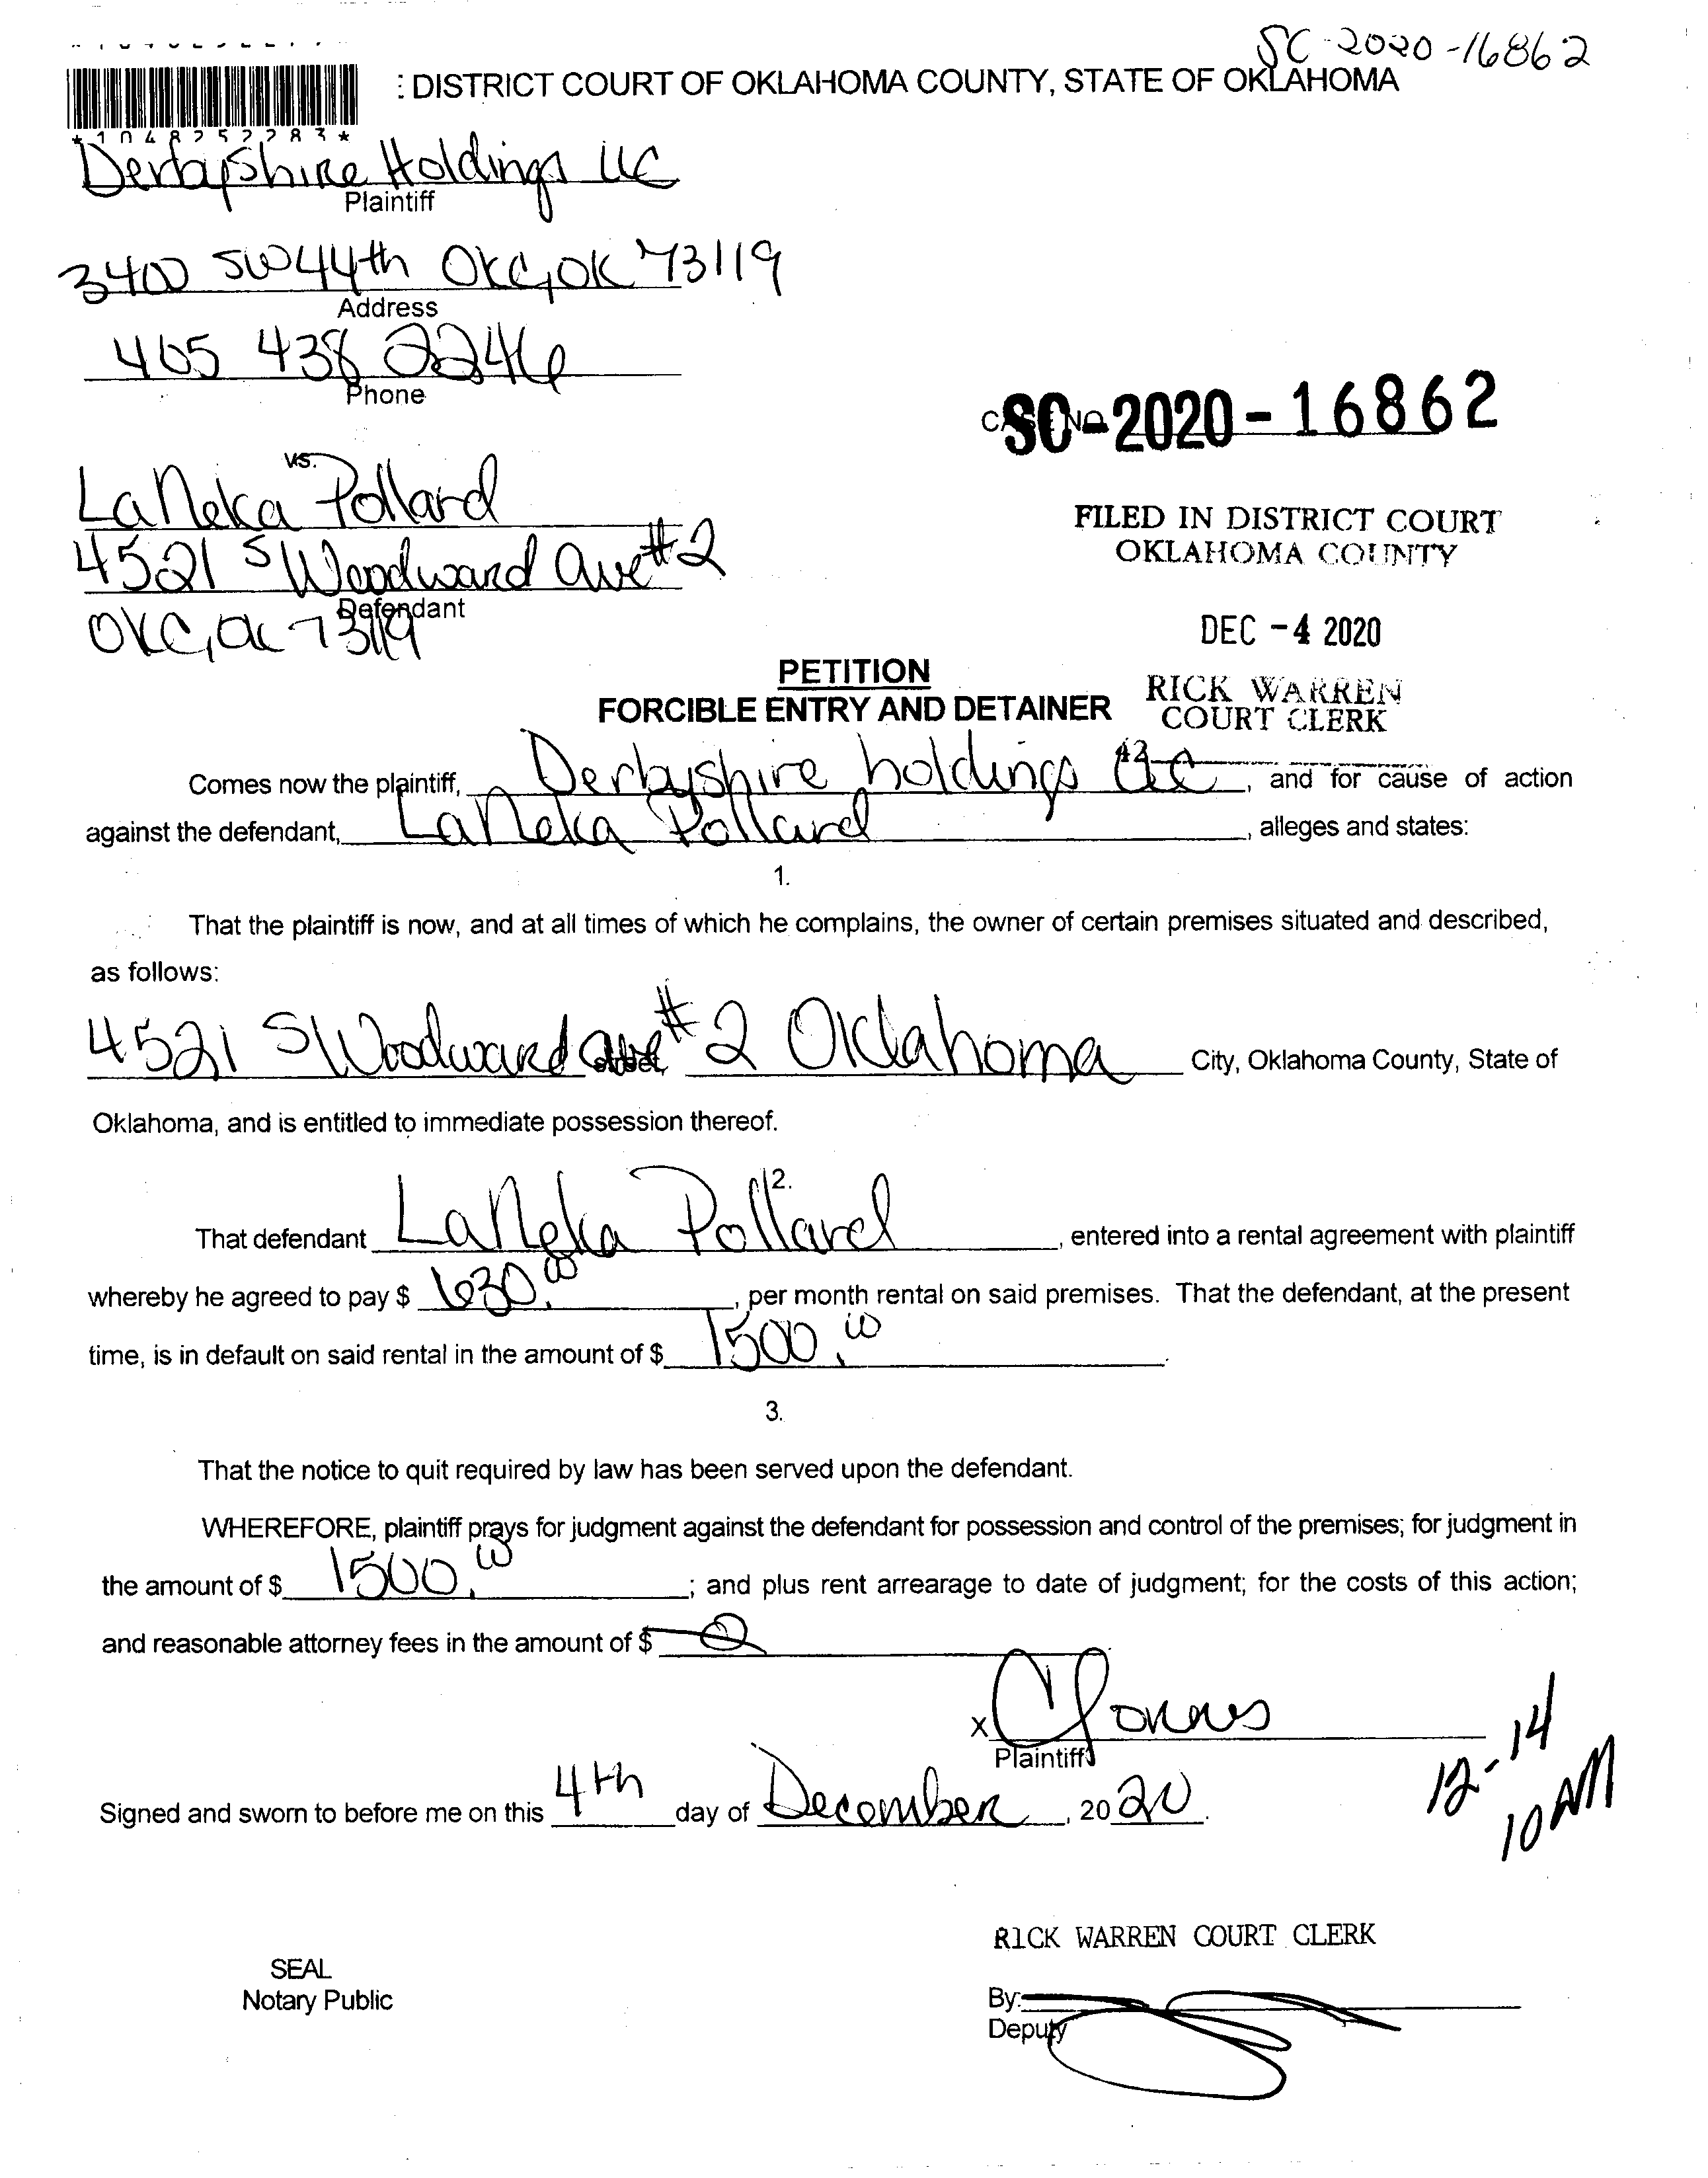 SC-2020-16862
: DISTRICT COURT OF OKLAHOMA COUNTY, STATE OF OKLAHOMA
*1048252283*
Derbyshire Holdings LLC
Plaintiff
3400 SW 44th OKC, OK 73119
Address
405 438 2246
Phone
SC-2020-16862
vs.
LaNeka Pollard
4521 S Woodward Ave #2
Defendant
OKC, OK 73119
FILED IN DISTRICT COURT
OKLAHOMA COUNTY
DEC -4 2020
RICK WARREN
COURT CLERK
42
PETITION
FORCIBLE ENTRY AND DETAINER
Comes now the plaintiff, Derbyshire holdings LLC, and for cause of action
against the defendant, LaNeka Pollard, alleges and states:
1.
That the plaintiff is now, and at all times of which he complains, the owner of certain premises situated and described,
as follows:
4521 S Woodward ave #2 Oklahoma City, Oklahoma County, State of
street,
Oklahoma, and is entitled to immediate possession thereof.
2.
That defendant LaNeka Pollard, entered into a rental agreement with plaintiff
whereby he agreed to pay $ 630.00, per month rental on said premises. That the defendant, at the present
time, is in default on said rental in the amount of $ 1500.00.
3.
That the notice to quit required by law has been served upon the defendant.
WHEREFORE, plaintiff prays for judgment against the defendant for possession and control of the premises; for judgment in
the amount of $ 1500.00; and plus rent arrearage to date of judgment; for the costs of this action;
and reasonable attorney fees in the amount of $ 0
x
Plaintiff
12-14
10 AM
Signed and sworn to before me on this 4th day of December, 2020.
RICK WARREN COURT CLERK
SEAL
Notary Public
By:
Deputy